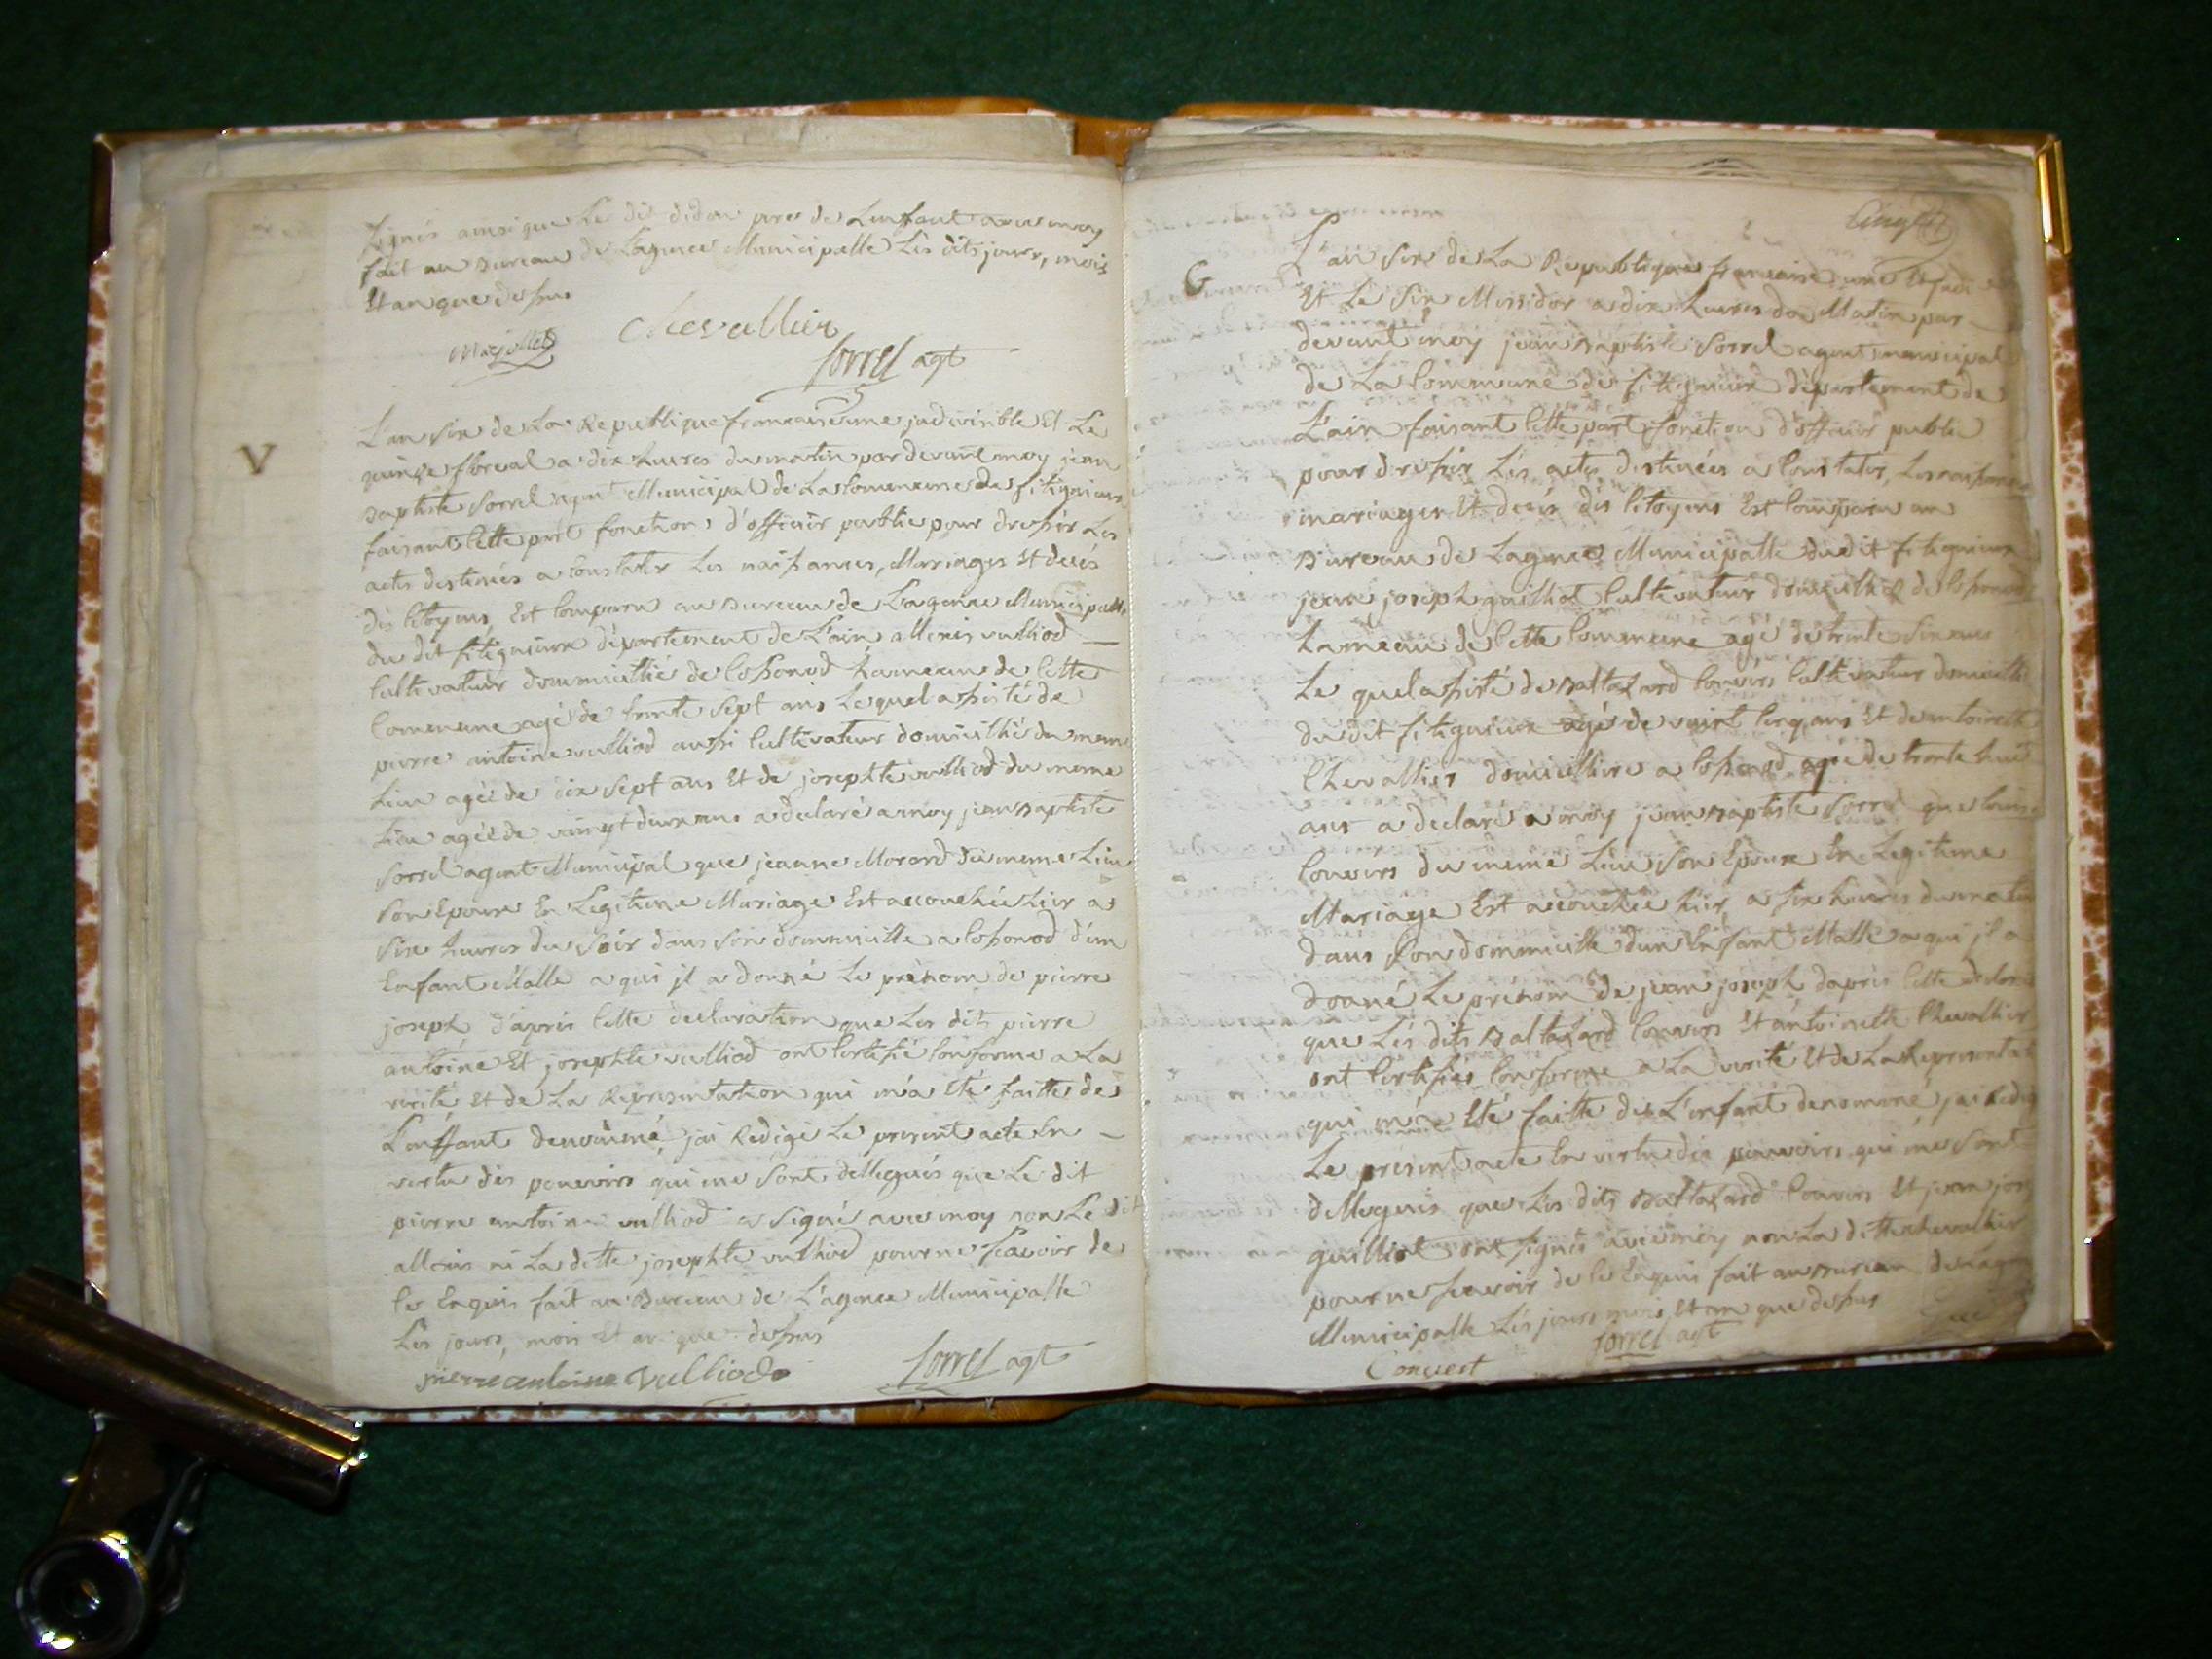 signés ainsi que le dit didon pere de Lenfant avec moy
fait au Bureau de Lagence Municipalle Lés dits jours, mois
Et an que dessus
Chevallier
Sorrel agt
V
L'an six de La Republique francaise une jndivisible Et Le
quinze floreal a dix heures du matin par devant moy jean
Baptiste Sorrel agent Municipal de La Commune de fitignieux
faisant Cette part fonctions d'officier public pour dresser Les
actes destinés a Constater Les naissances, Mariages Et decés
des Citoyens, Est Comparu au Bureau de Lagence Municipalle
du dit fitignieux département de L'ain, allexis vulliod
Cultivateur dommicillié de Cossonod hameau de Cette
Commune agé de trente Sept ans Lequel assisté de
pierre antoine vulliod aussi Cultivateur domicillié du meme
Lieu agé de dix sept ans Et de josephte vulliod du meme
Lieu agéé de vingt deux ans a declaré a moy jean Baptiste
Sorrel agent Municipal que jeanne Morard du meme Lieu
Son Epouse En Legitime Mariage Est accouchéé hier a
Six heures du Soir dans Son dommicille a Cossonod d'un
Enfant Malle a qui jl a donné Le prénom de pierre
joseph, d'aprés Cette declaration que Les dits pierre
antoine Et josephte vulliod ont Certifié Conforme a La
verité Et de La Representation qui m'a Eté faitte de
L'enffant denommé, jai Redigé Le present acte En
vertu des pouvoirs qui me Sont dellegués que Le dit
pierre antoine vulliod a Signé avec moy non Le dit
allexis ni La ditte josephte vulliod pour ne Scavoir de
Ce Enquis fait au Bureau de L'agence Municipalle
Les jours, mois Et an que dessus
pierre antoine vulliod
Sorrel agt
G
L'an Six de La Republique francaise une Et jndi
Et Le Six Messidor a dix heures du Matin par
devant moy jean Baptiste Sorrel agent municipal
de La Commune de fitignieux département de
L'ain faisant Cette part fonction d'officier public
pour dresser Lés actes destinées a Constater, Les naissances
mariages Et decés dés Citoyens Est Comparu au
Bureau de Lagence Municipalle du dit fitignieux
jean joseph guilliot Cultivateur domicillié de Cossonod
hameau de Cette Commune agé de trente Six ans
Le quel assisté de Baltazard Convers Cultivateur domicillié
du dit fitignieux agé de vaint Cinq ans Et de antoinette
Chevallier domicilliéé a Cossonod agée de trente huit
ans a declaré a moy jean Baptiste Sorrel que
Convers du meme Lieu Son Epouse En Legitime
Mariage Est accouchée hier, a Six heures du matin
dans Son dommicille d'un Enfant Malle a qui jl a
donné Le prenom de jean joseph dapres Cette
que Lés dits Baltazard Convers Et antoinette Chevallier
ont Certifiés Conforme a La verité Et de La Representat
qui m'a Eté faitte de L'enfant denommé, jai Redigé
Le present acte En vertu des pouvoirs qui me Sont
dellegués que Lés dits Baltazard Convers Et jean jos
guilliot ont Signés avec moy non La ditte chevallier
pour ne Scavoir de Ce Enquis fait au Bureau de Lagen
Municipalle Lés jours, mois, Et an que dessus
Sorrel agt
Convert